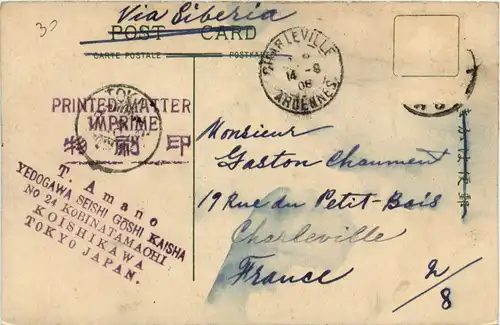 30
Via Siberia
POST CARD
CARTE POSTALE POSTKARTE
CHARLEVILLE
14 - 8
08
ARDENNES
PRINTED MATTER
IMPRIME
物刷印
TOKYO
T. Amano
YEDOGAWA SEISHI GOSHI KAISHA
No 24 KOBINATAMACHI
KOISHIKAWA
TOKYO JAPAN.
Monsieur
Gaston Chaument
19 Rue du Petit-Bois
Charleville
France
2/8